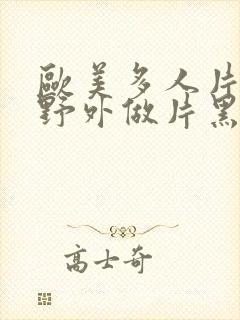 歐美多人片
野外做片黑
高士奇